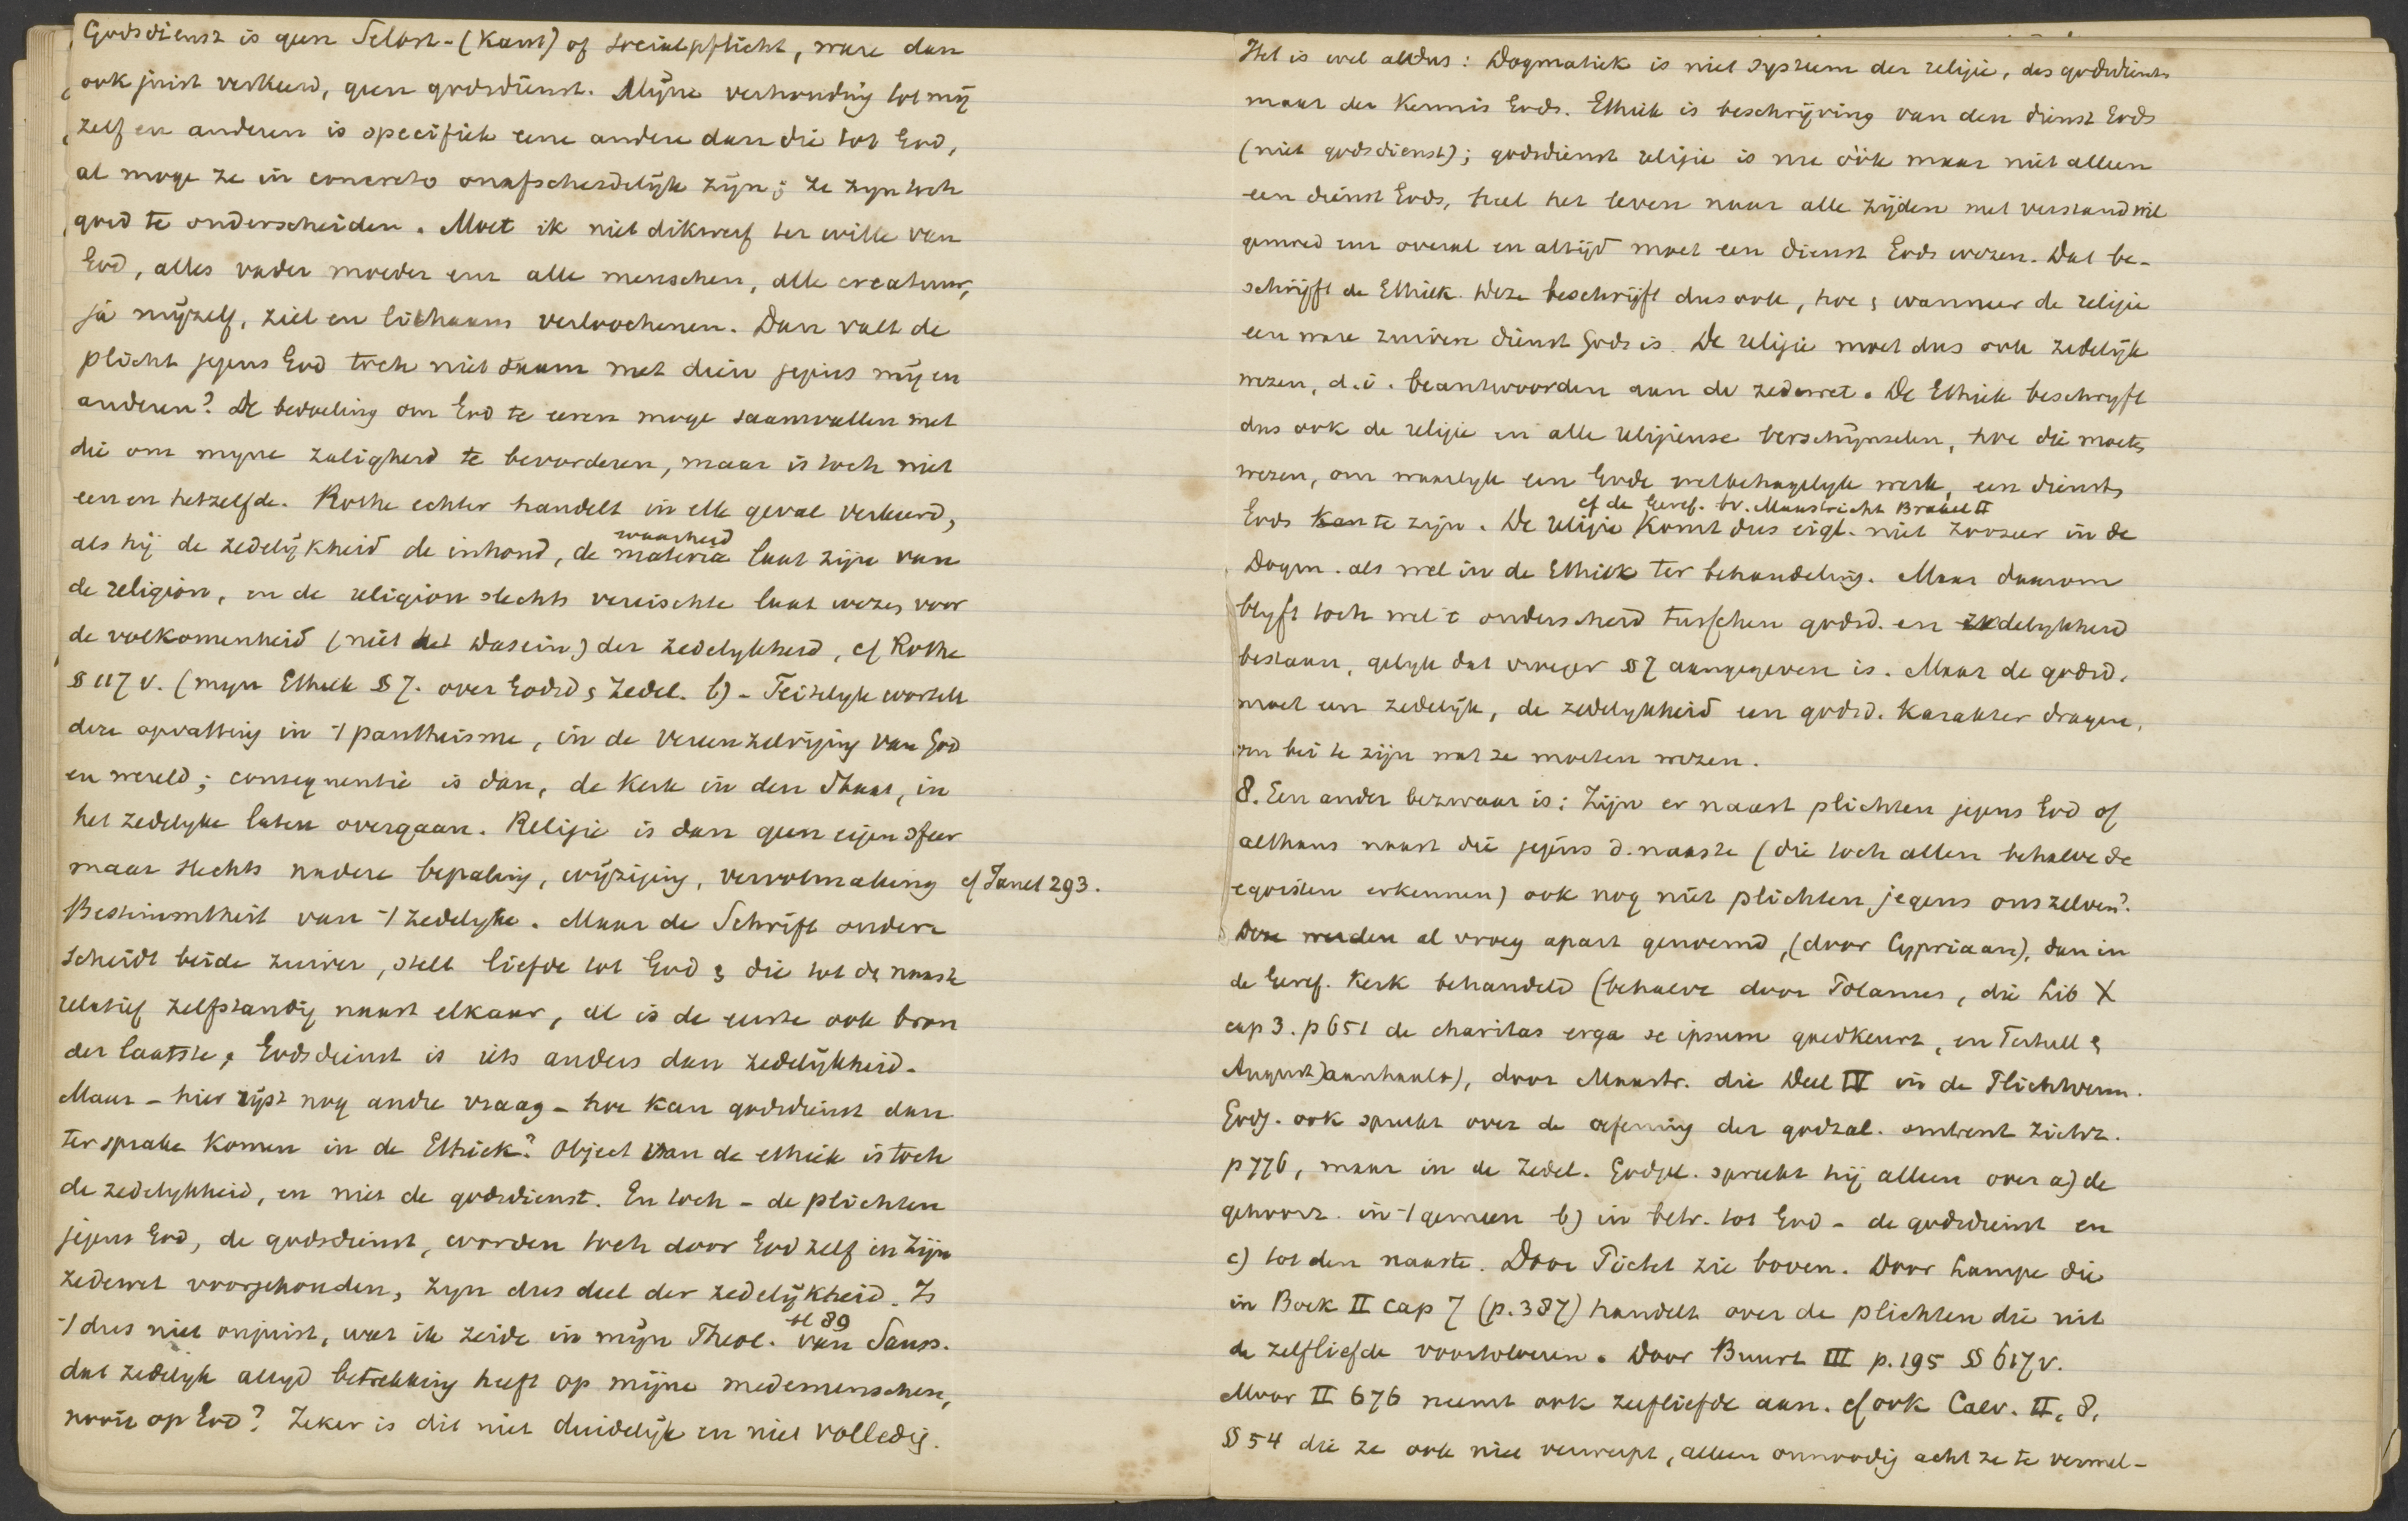 Godsdienst is geen Selbst-(Kant) of socialpflicht, ware dan
ook juist verkeerd, geen godsdienst. Mijne verhouding tot mij
zelf en anderen is specifiek eene andere dan die tot God,
al moge ze in concreto onafscheidelijk zijn; ze zyn toch
goed te onderscheiden. Moet ik niet dikwerf ter wille van
God, alles vader moeder enz alle menschen, alle creatuur,
ja mijzelf, ziel en lichaam verloochenen. Dan valt de
plicht jegens God toch niet saam met dien jegens mij en
anderen? De bedoeling om God te eeren moge saamvallen met
die om myne zaligheid te bevorderen, maar is toch niet
een en hetzelfde. Rothe echter handelt in elk geval verkeerd,
waarheid
als hij de zedelijkheid de inhoud, de materia laat zijn van
de religion, en de religion slechts vereischte laat wezen voor
de volkomenheid (niet het Dasein) der zedelykheid, cf Rothe
§ 117 v. (myn Ethiek § 7. over Godsd & Zedel. b) - Feitelyk wortelt
deze opvatting in 't pantheisme, in de vereenzelviging van God
en wereld; consequentie is dan, de Kerk in den Staat, in
het zedelyke laten overgaan. Religie is dan geen eigen sfeer
maar slechts nadere bepaling, wijziging, vervolmaking cf Janet 293.
Bestimmtheit van 't zedelyke. Maar de Schrift onder
scheidt beide zuiver, stelt liefde tot God & die tot de naaste
relatief zelfstandig naast elkaar, al is de eerste ook bron
der laatste; Godsdienst is iets anders dan zedelijkheid.
Maar - hier rijst nog andre vraag - hoe kan godsdienst dan
ter sprake komen in de Ethiek? Object van de ethiek is toch
de zedelykheid, en niet de godsdienst. En toch - de plichten
jegens God, de godsdienst, worden toch door God zelf in zijn
zedewet voorgehouden, zyn dus deel der zedelijkheid. Is
st 89
't dus niet onjuist, wat ik zeide in mijn Theol. van Sauss.
dat zedelyk altyd betrekking heeft op mijne medemenschen,
nooit op God? Zeker is dit niet duidelijk en niet volledig.
Het is wel aldus: Dogmatiek is niet systeem der religie, des godsdiensts
maar der Kennis Gods. Ethiek is beschrijving van den dienst Gods
(niet godsdienst); godsdienst religie is nu óók maar niet alleen
een dienst Gods, heel het leven naar alle zijden met verstand wil
gemoed enz overal en altijd moet een dienst Gods wezen. Dat be-
schrijft de Ethiek. Deze beschrijft dus ook, hoe & wanneer de religie
een ware zuivere dienst Gods is. De religie moet dus ook zedelijk
wezen, d.i. beantwoorden aan de zedewet. De Ethiek beschryft
dus ook de religie en alle religieuse verschijnselen, hoe die moeten
wezen, om waarlyk een Gode welbehagelyk werk, een dienst
cf de Geref. bv. Maastricht Brakel II
Gods kan te zijn. De religie komt dus eigl. niet zoozeer in de
Dogm. als wel in de Ethiek ter behandeling. Maar daarom
blyft toch wel 't onderscheid tusschen godsd. en zedelykheid
bestaan, gelyk dat vroeger § 7 aangegeven is. Maar de godsd.
moet een zedelijk, de zedelykheid een godsd. karakter dragen,
om bei te zijn wat ze moeten wezen.
8. Een ander bezwaar is: Zijn er naast plichten jegens God of
althans naast die jegens d. naaste (die toch allen behalve de
egoisten erkennen) ook nog niet plichten jegens ons zelven?
Deze werden al vroeg apart genoemd, (door Cypriaan), dan in
de Geref. Kerk behandeld (behalve door Polanus, die Lib X
cap 3. p 651 de charitas erga se ipsum goedkeurt, en Tertull &
August) aanhaalt), door Maastr. die Deel IV in de Plichtverm.
Godg. ook spreekt over de oefening der godzal. omtrent zichz.
p 776, maar in de Zedel. Godgel. spreekt hij alleen over a) de
gehoorz. in 't gemeen b) in betr. tot God - de godsdienst en
c) tot den naaste. Door Pictet zie boven. Door Lampe die
in Boek II cap 7 (p. 387) handelt over de plichten die uit
de zelfliefde voortvloeien. Door Buurt III p. 195 § 617 v.
Moor II 676 neemt ook zelfliefde aan. cf ook Calv. II, 8,
§ 54 die ze ook niet verwerpt, alleen onnoodig acht ze te vermel-